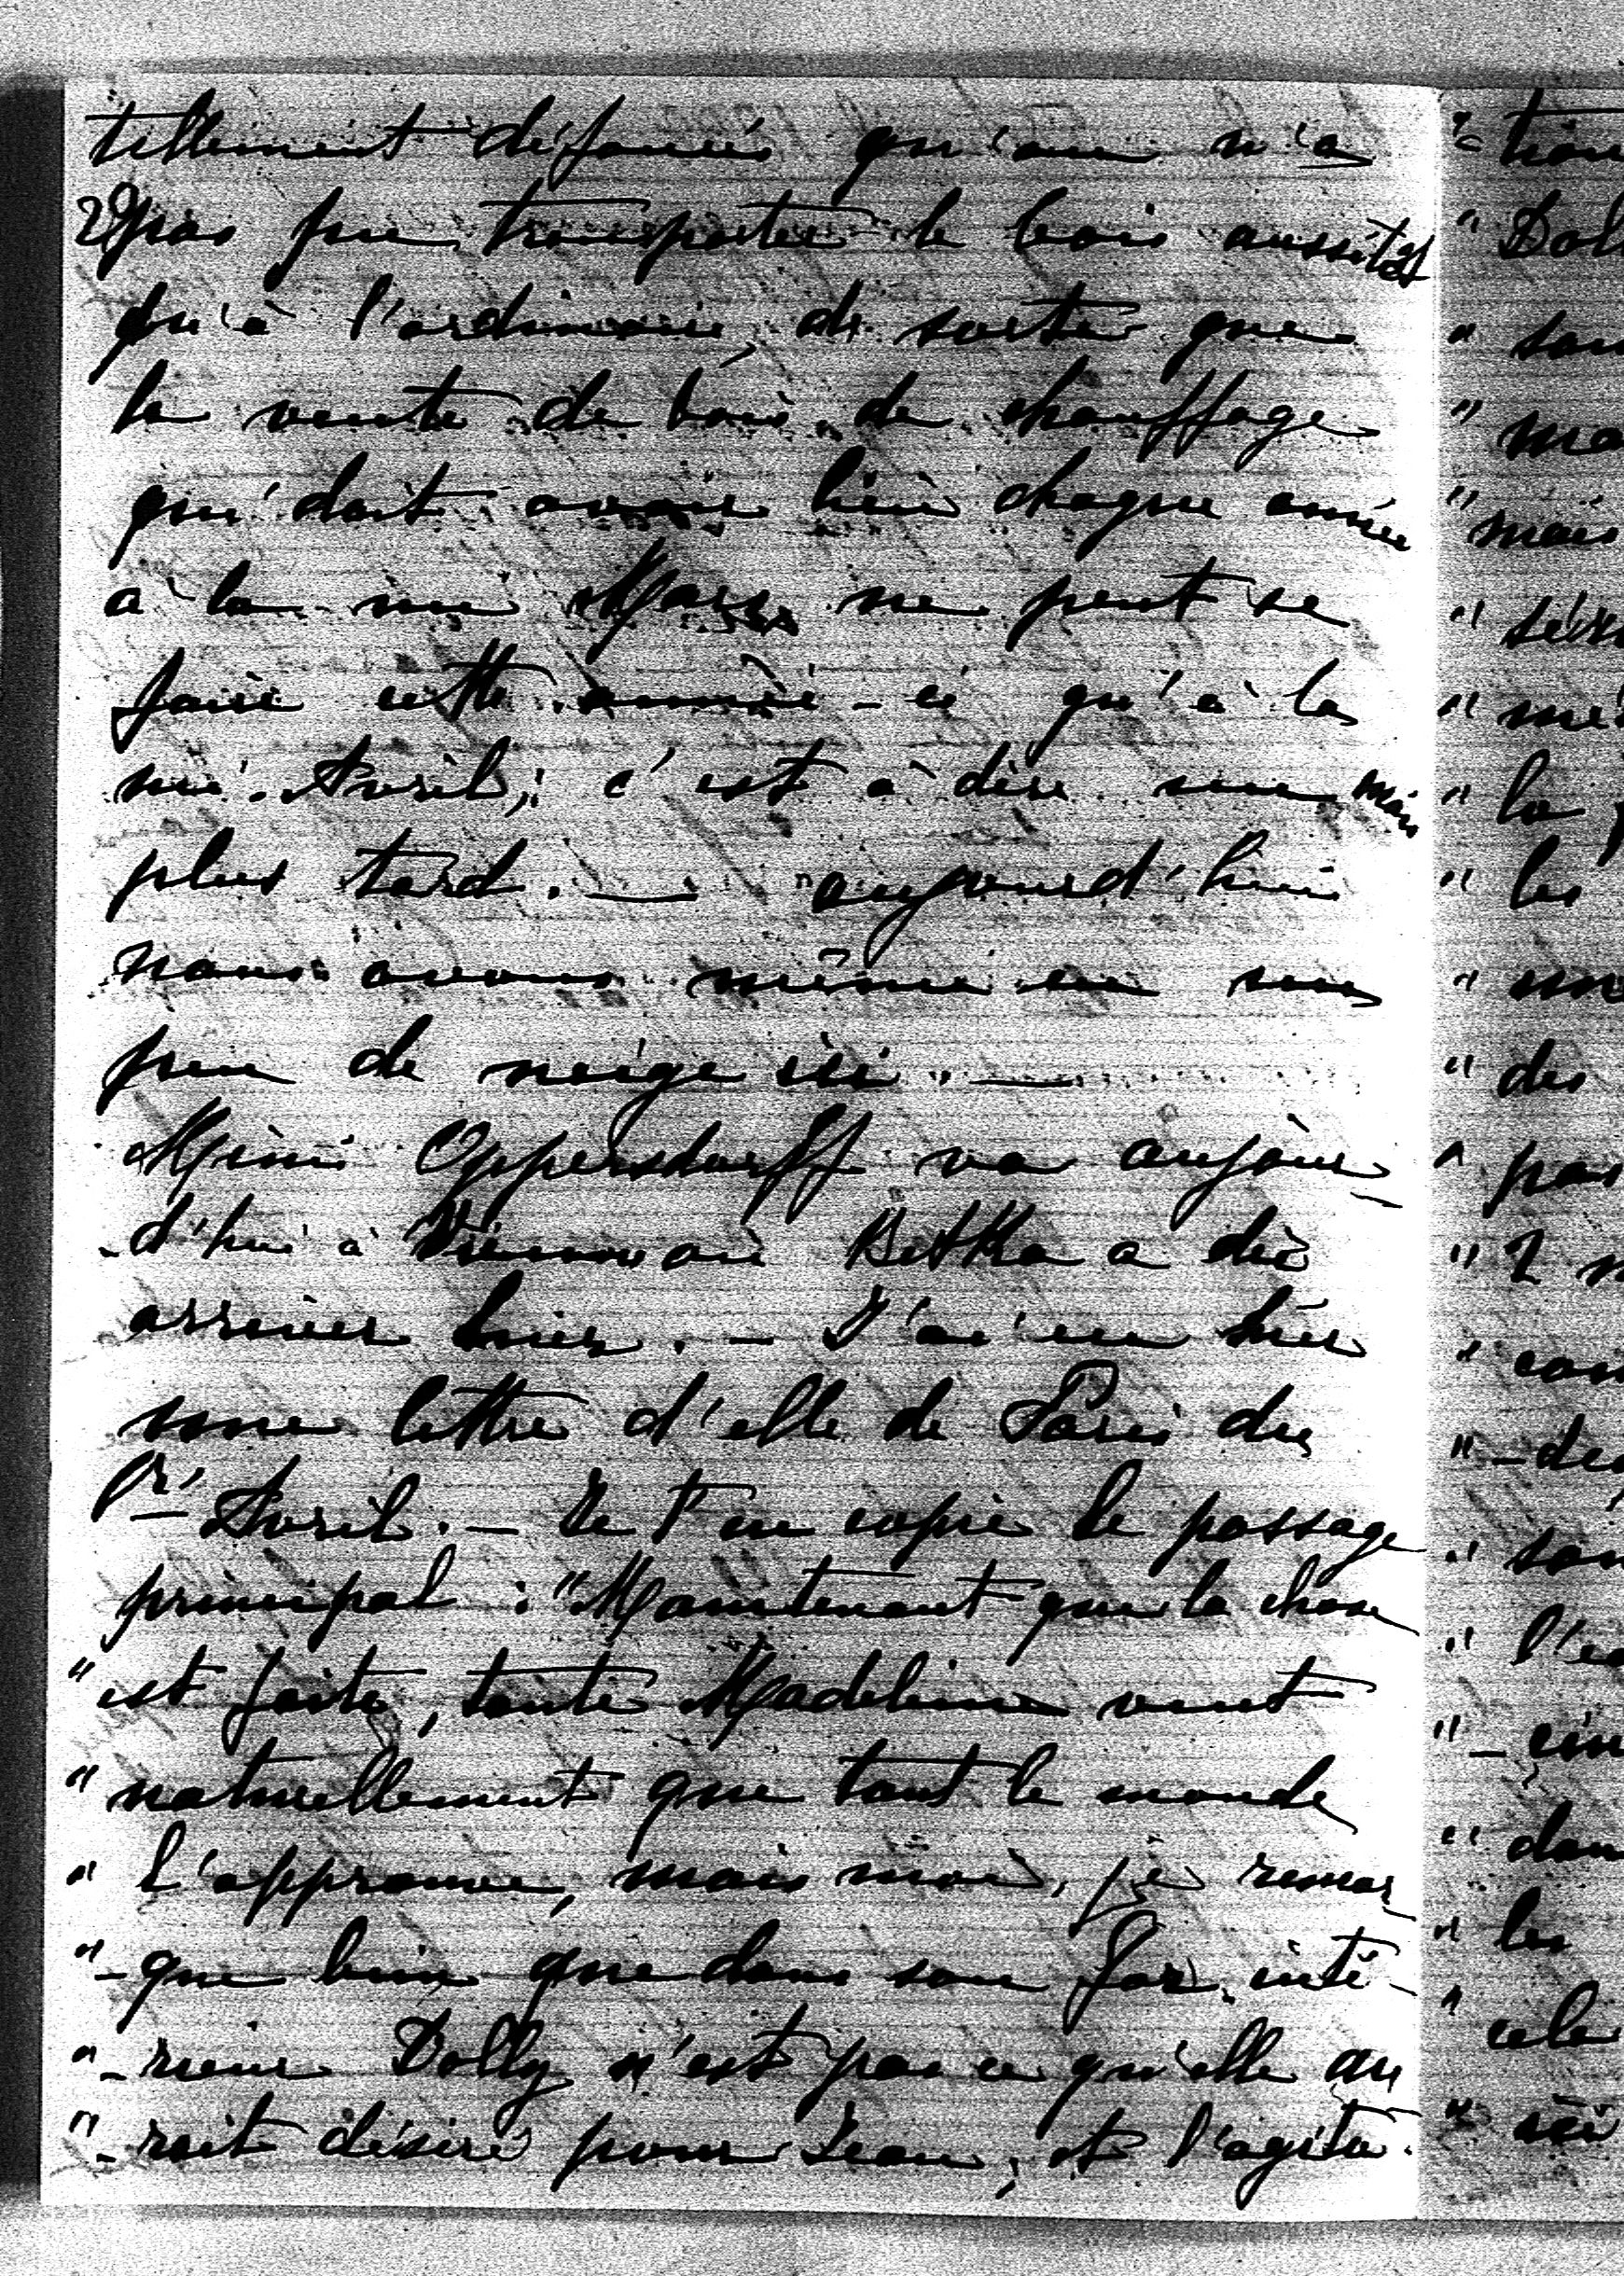 tellement défoncés qu'on n'a
2) pas pu transporter le bois aussitôt
qu'à l'ordinaire, de sorte que
la vente de bois de chauffage
qui doit avoir lieu chaque année
à la mi Mars ne peut se
faire cette année-ci qu'à la
mi-Avril; c'est à dire un mois
plus tard. — aujourd'hui
nous avons même eu un
peu de neige ici. —
Mimi Oppersdorff va aujour-
-d'hui à Vienne où Betka a dû
arriver hier. — J'ai eu hier
une lettre d'elle de Paris du
1r Avril. — Je t'en copie le passage
principal : "Maintenant que la chose
" est faite, tante Madeleine veut
" naturellement que tout le monde
" l'approuve, mais moi, je remar-
"-que bien que dans son for inté-
"-rieur Dolly n'est pas ce qu'elle au-
"-rait désiré pour Jean, et l'agita-
" tion
" Dol
" son
" ma
" mais
" me
" la
" les
" des
" 2
" con
" l'e
" les
" ici